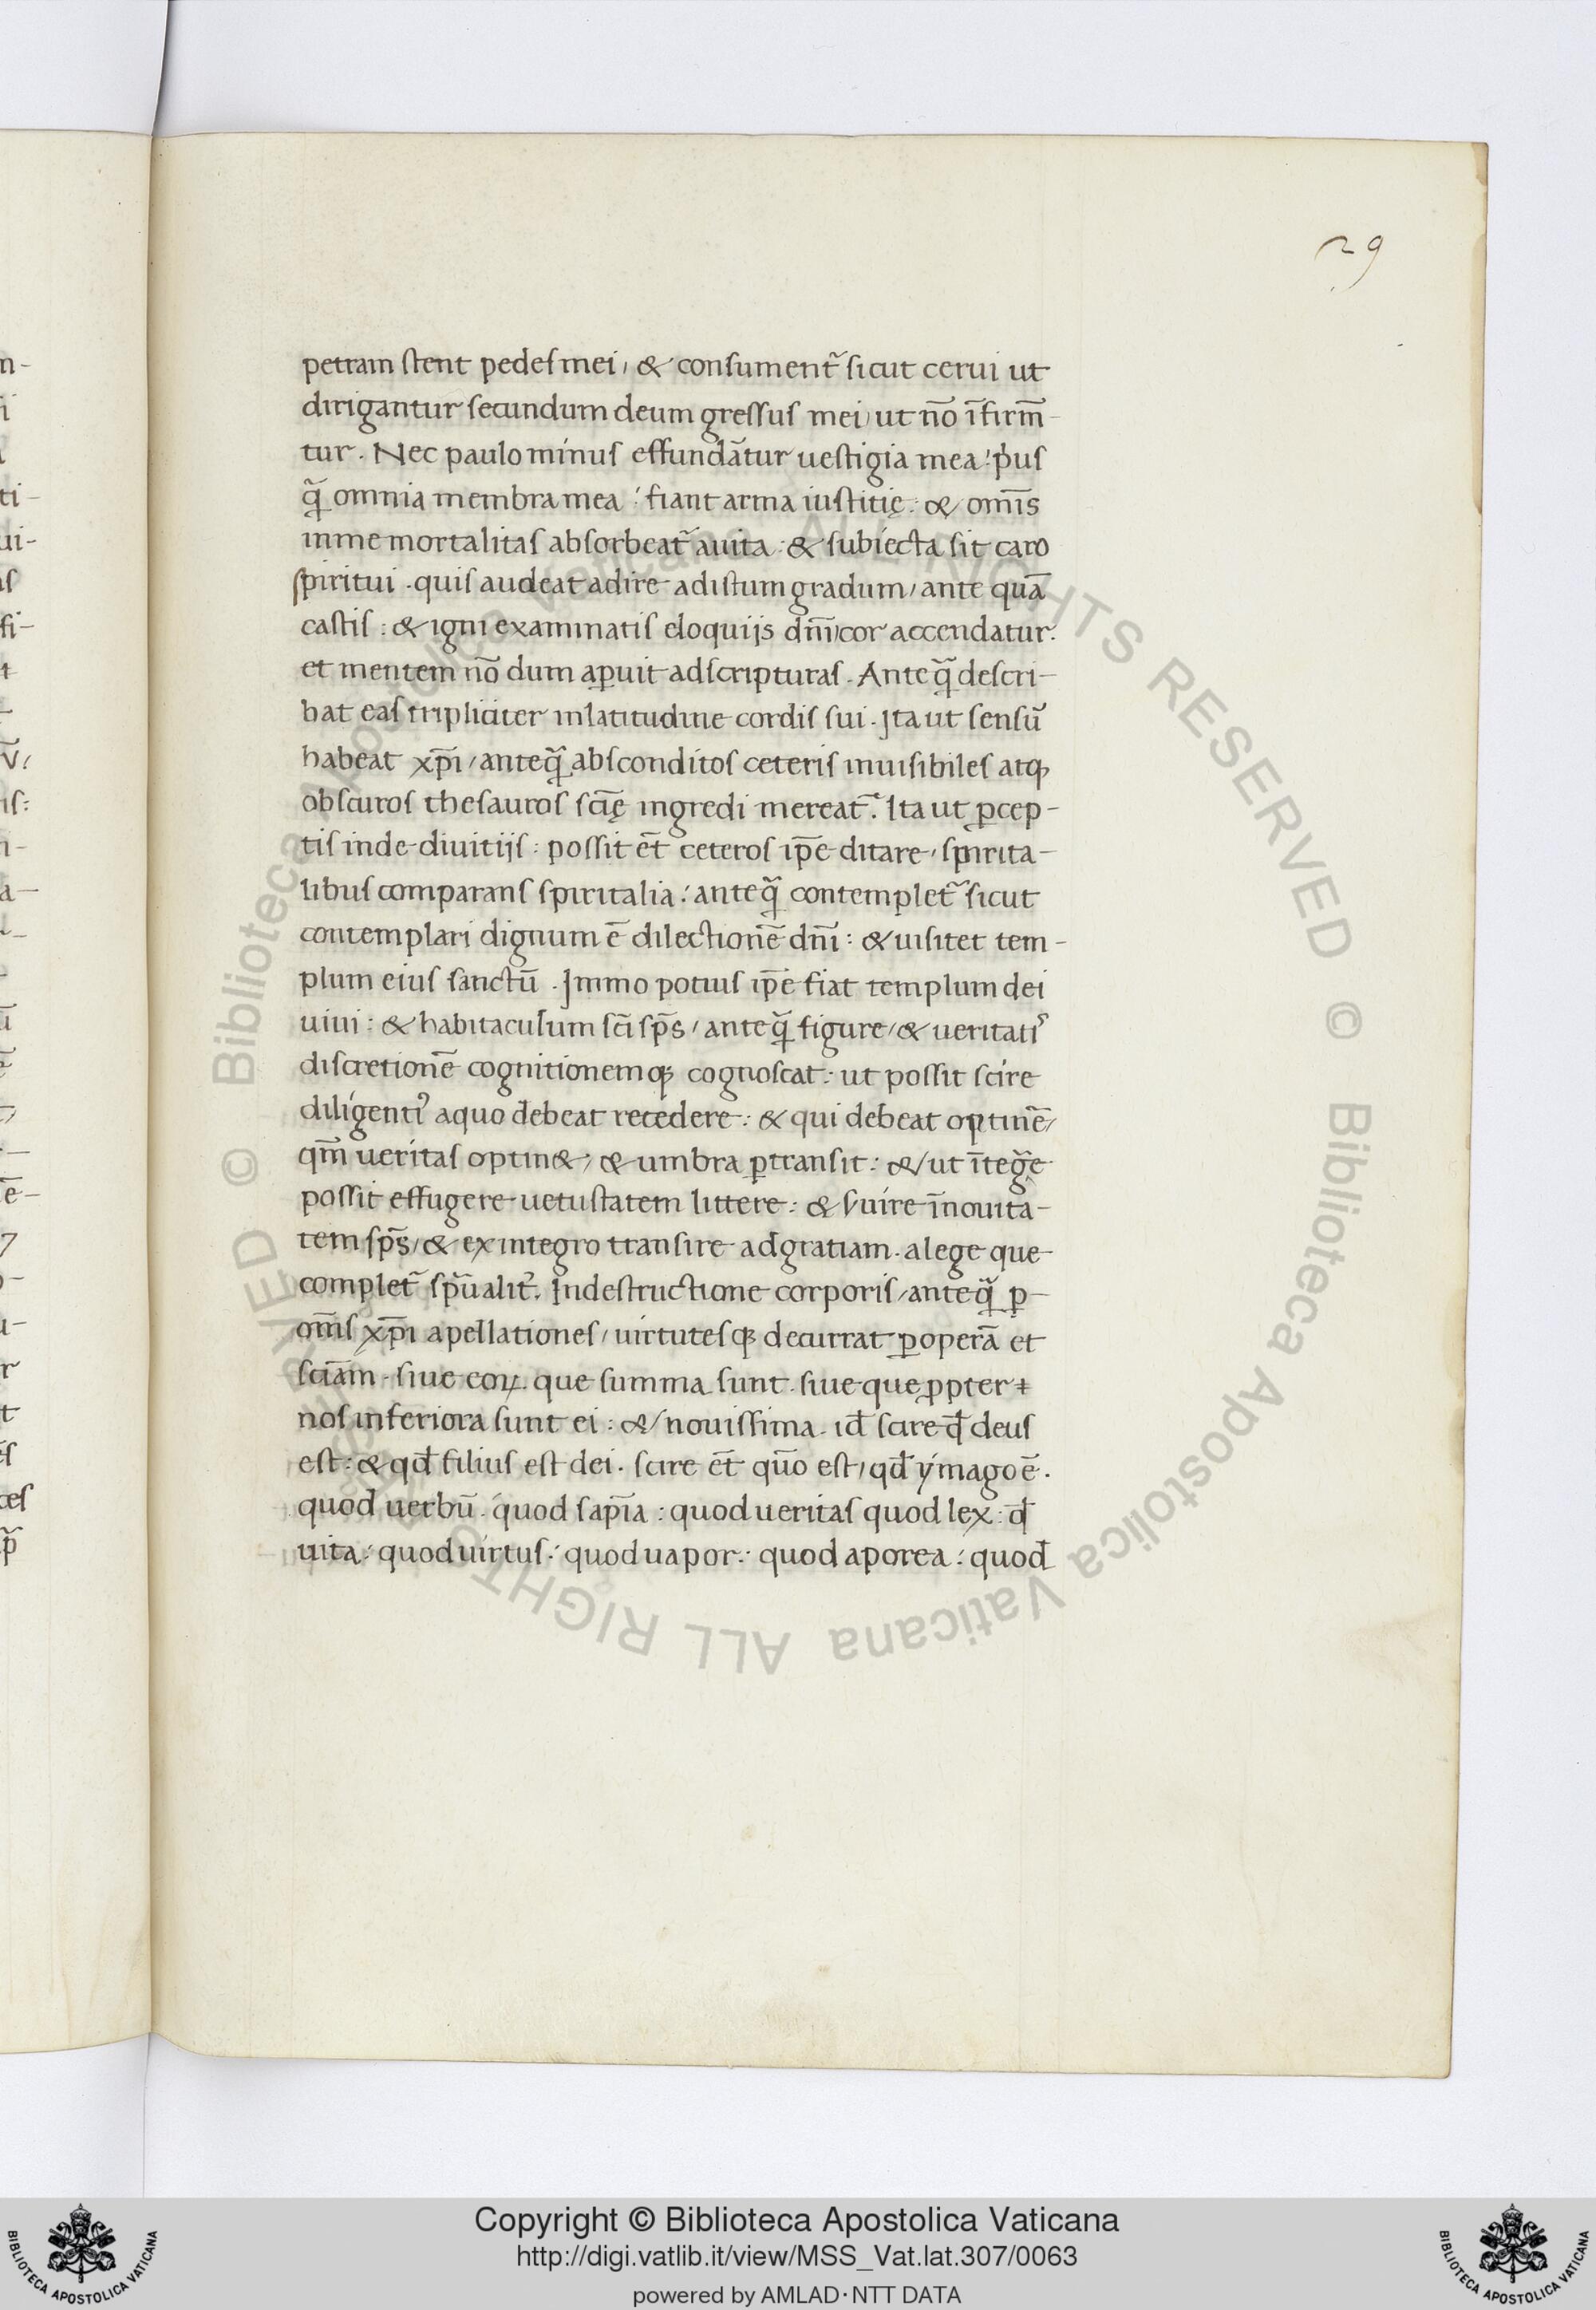 29
petram stent pedes mei, & consument᷑ sicut cerui ut
dirigantur secundum deum gressus mei, ut nō īfirm̄-
tur. Nec paulo minus effundātur uestigia mea: p̍us
q̃ omnia membra mea: fiant arma iustitię: & om̄is
in me mortalitas absorbeat᷑ a uita: & subiecta sit caro
spiritui. quis audeat adire ad istum gradum, ante quā
castis: & igni examinatis eloquijs dn̄i, cor accendatur.
et mentem nō dum apuit ad scripturas. Ante q̃ descri-
bat eas tripliciter in latitudine cordis sui. Ita ut sensū
habeat xp̄i, ante q̃ absconditos ceteris inuisibiles atqꝫ
obscuros thesauros scīę ingredi mereat᷑. Ita ut ꝑcep-
tis inde diuitijs: possit ēt ceteros ip̄e ditare, spirita-
libus comparans spiritalia: ante q̃ contemplet᷑ sicut
contemplari dignum ē dilectionē dn̄i: & uisitet tem-
plum eius sanctū. Immo potius ip̄e fiat templum dei
uiui: & habitaculum sc̄i sp̄s, ante q̃ figure, & ueritatis
discretionē cognitionemqꝫ cognoscat: ut possit scire
diligenti᷒ a quo debeat recedere: & qui debeat optinē,
qm̄ ueritas optin&; & umbra ꝑtransit: & ut īteg̃e
possit effugere uetustatem littere: & s̍uire ī nouita-
tem sp̄s, & ex integro transire ad gratiam. a lege que
complet᷑ sp̄ualit᷑. In destructione corporis, ante q̃ ꝑ
om̄s xp̄i apellationes, uirtutesqꝫ decurrat ꝑ operā et
sciām. siue eoꝝ que summa sunt. siue que ꝓpter
nos inferiora sunt ei: & nouissima. id̄ scire qd̄ deus
est: & qd̄ filius est dei. scire ēt quō est, qd̄ ymago ē.
quod uerbū. quod sapīa: quod ueritas quod lex: qd̄
uita: quod uirtus: quod uapor: quod aporea: quod
Copyright © Biblioteca Apostolica Vaticana
http://digi.vatlib.it/view/MSS_Vat.lat.307/0063
powered by AMLAD·NTT DATA
BIBLIOTECA APOSTOLICA VATICANA
BIBLIOTECA APOSTOLICA VATICANA
© Biblioteca Apostolica Vaticana ALL RIGHTS RESERVED © Biblioteca Apostolica Vaticana ALL RIGHTS RESERVED